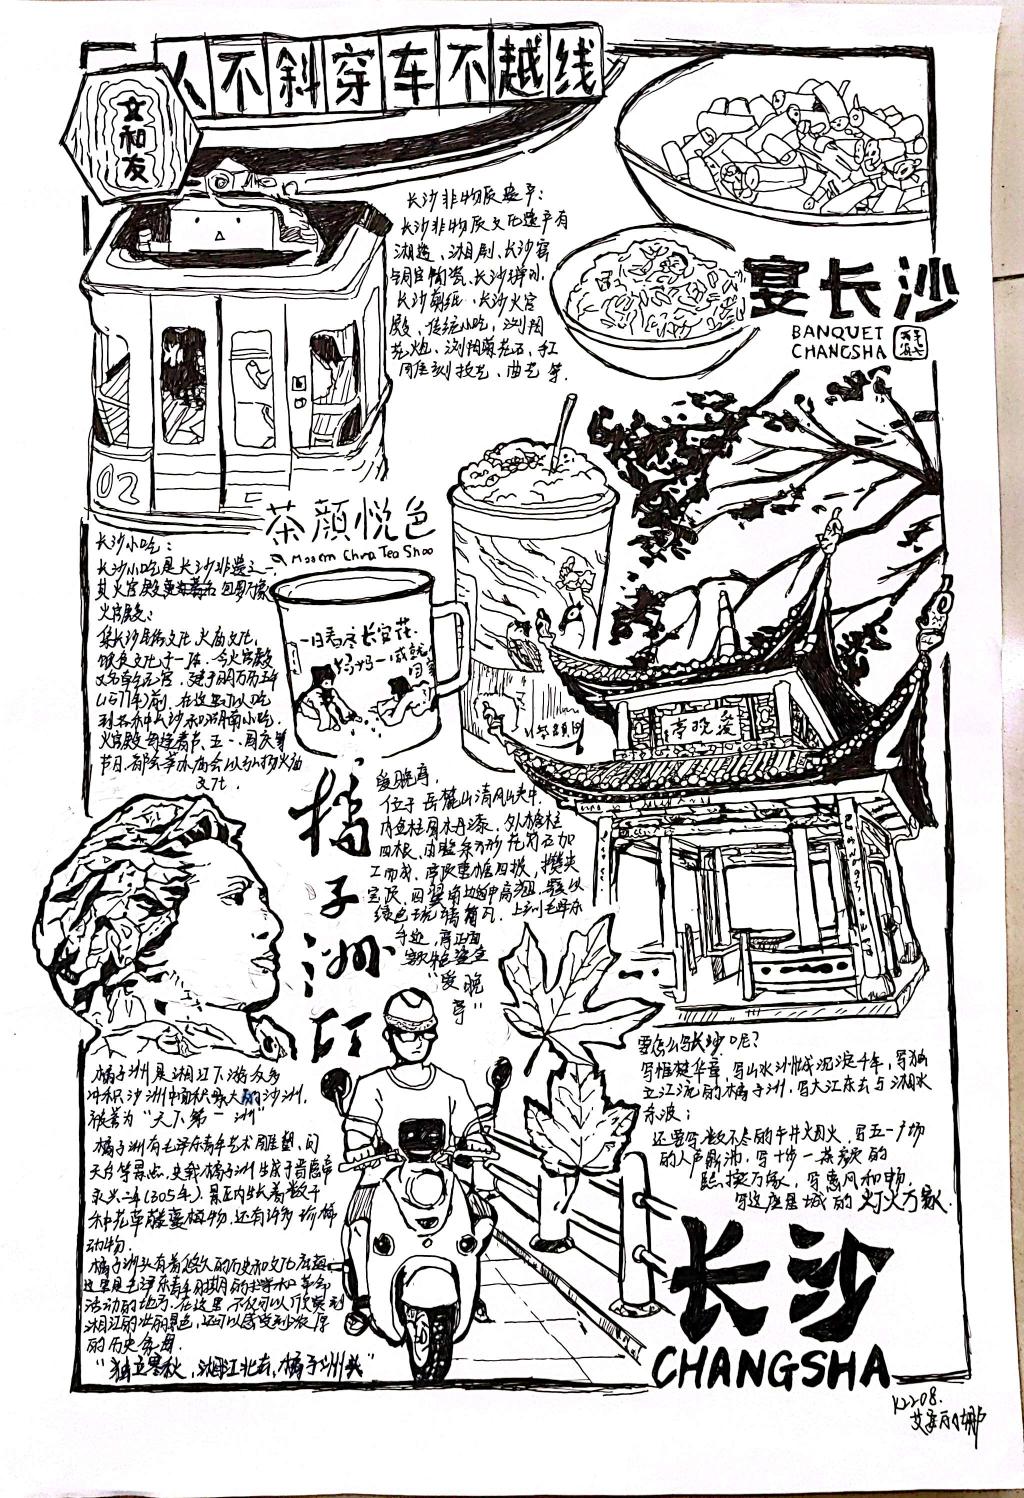 人不斜穿车不越线
文
和
友
长沙非物质遗产:
长沙非物质文化遗产有
湘绣、湘剧、长沙窑
铜官陶瓷、长沙弹词、
长沙剪纸、长沙火宫
殿、传统小吃、浏阳
花炮、浏阳菊花石、
雕刻技艺、曲艺等.
宴长沙
BANQUET
CHANGSHA
02
茶颜悦色
Modern China Tea Shop
长沙小吃:
长沙小吃是长沙非遗之一
其火宫殿
火宫殿:
集长沙民俗文化、火庙文化、
饮食文化于一体.今火宫殿
又名乾元宫.建于明万历五年
(1577年)前.在这里可以吃
到各种长沙和湖南小吃.
火宫殿每逢春节、五一、国庆等
节日.都会举办庙会以弘扬火庙
文化.
一日看尽长安花
爱晚亭
橘
子
洲
头
爱晚亭.
位于岳麓山清风峡中.
内金柱圆木丹漆.外檐柱
四根.由整条方形花岗石加
工而成.亭顶重檐四披,攒尖
宝顶,四翼角边远伸高翘.覆以
绿色琉璃筒瓦.上刻毛泽东
手迹,亭正面
额朱色鎏金
“爱晚
亭”
橘子洲是湘江下游众多
冲积沙洲中面积最大的沙洲,
被誉为“天下第一洲”
橘子洲有毛泽东青年艺术雕塑、问
天台等景点.史载橘子洲生成于晋惠帝
永兴二年(305年).景区内生长着数千
种花草藤蔓植物.还有许多珍稀
动物.
橘子洲头有着悠久的历史和文化底蕴
这里是毛泽东青年时期的求学和革命
活动的地方.在这里不仅可以欣赏到
湘江的壮丽景色,还可以感受到浓厚
的历史氛围.
“独立寒秋,湘江北去,橘子洲头”
要怎么写长沙呢?
写惟楚华章,写山水洲城沉淀千年,写独
立江流的橘子洲.写大江东去与湘水
余波;
还要写数不尽的市井烟火,写五一广场
的人声鼎沸,写十步一茶颜的
熙攘万家,写惠风和畅,
写这座星城的灯火万家.
长沙
CHANGSHA
K2208.